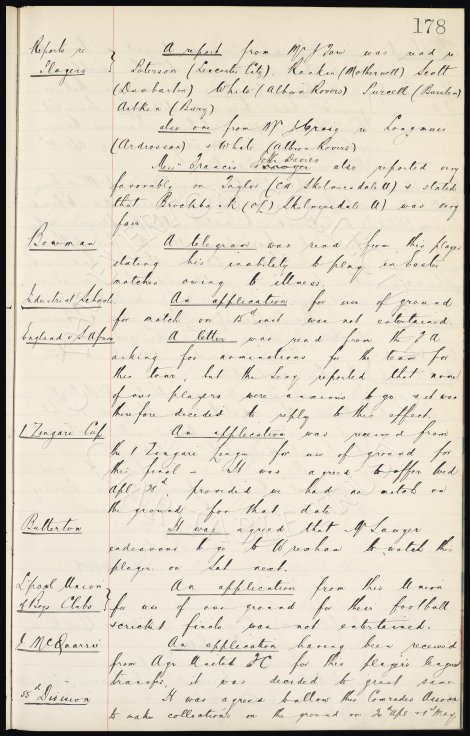 178
Reports re Players
A report from Mr J Farr was read re
Paterson (Leicester City), Rankin (Motherwell) Scott
(Dumbarton) White (Albion Rovers) Purcell (Burnton)
Aitken (Bury)
also one from Mr Craig re Longmuir
(Ardrossan) & White (Albion Rovers)
Mess Francis & John Davies also reported very
favorably on Taylor (CH Skelmersdale U) & stated
that Brocklebank (OL) Skelmersdale U) was very
fair
Bowman
A telegram was read from this player
stating his inability to play in Easter
matches owing to illness.
Industrial Schools
An application for use of ground
for match on 15th inst was not entertained.
England v S. Africa
A letter was read from the F A
asking for nominations for the team for
this tour, but the Secy reported that none
of our players were anxious to go & it was
therefore decided to reply to this effect.
I Zingari Cup
An application was received from
the I Zingari League for use of ground for
this final - It was agreed to offer Wed
Apl provided we had no match on
the ground for that date
Butterton
It was agreed that Mr Sawyer
endeavour to go to Wrexham to watch this
player on Sat next.
L'pool Union of Boys Clubs
An application from this Union
for use of our ground for their football
& cricket finals was not entertained.
J McQuarrie
An application having been received
from Ayr United FC for this players league
transfer, it was decided to grant same.
55th Division
It was agreed to allow this Comrades Association
to make collections on the ground on 30th Apl & 1st May.